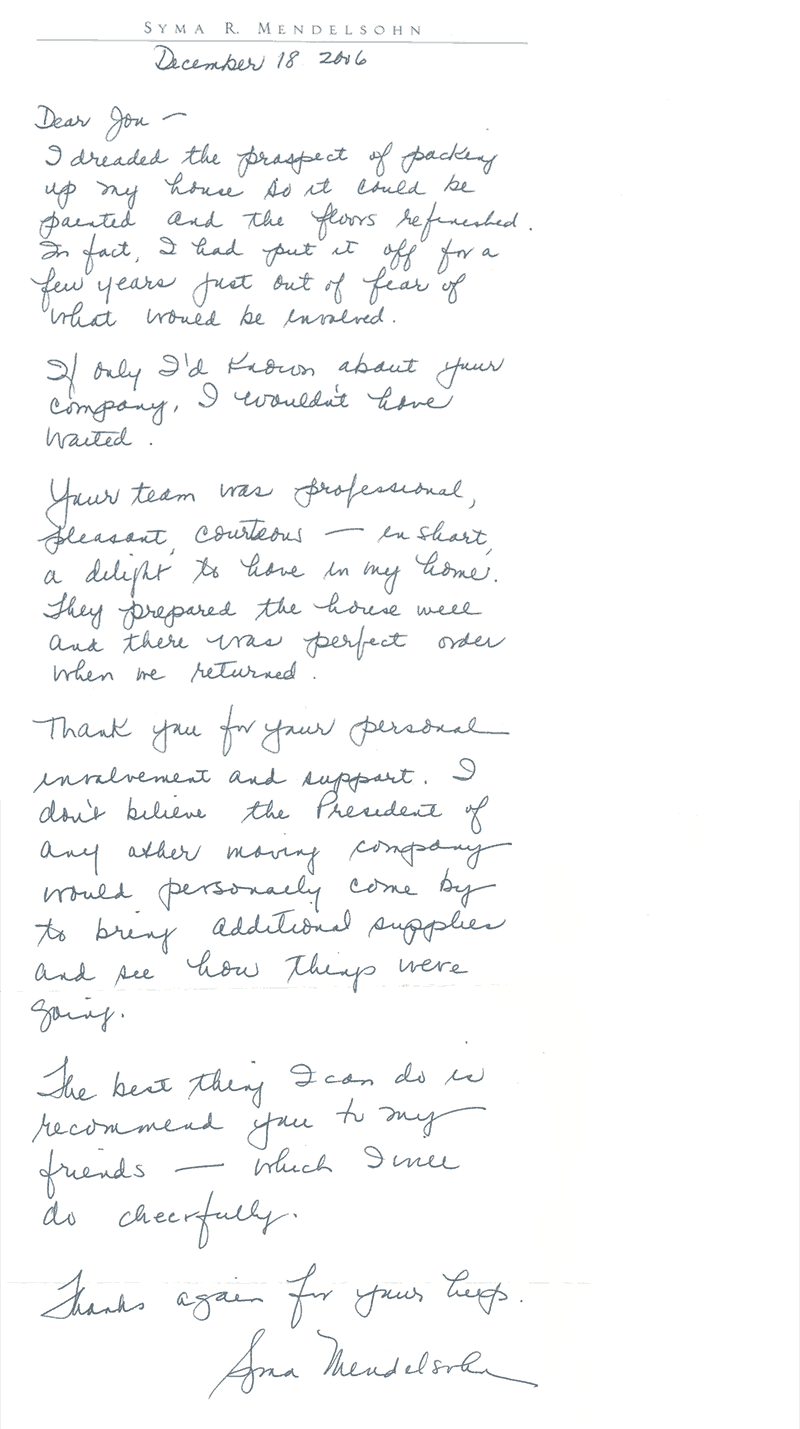 SYMA R. MENDELSOHN
December 18 2006
Dear Jon —
I dreaded the prospect of packing
up my house so it could be
painted and the floors refinished.
In fact, I had put it off for a
few years just out of fear of
what would be involved.
If only I'd known about your
company, I wouldn't have
waited.
Your team was professional,
pleasant, courteous — in short,
a delight to have in my home.
They prepared the house well
and there was perfect order
when we returned.
Thank you for your personal
involvement and support. I
don't believe the President of
any other moving company
would personally come by
to bring additional supplies
and see how things were
going.
The best thing I can do is
recommend you to my
friends — which I will
do cheerfully.
Thanks again for your help.
Syma Mendelsohn